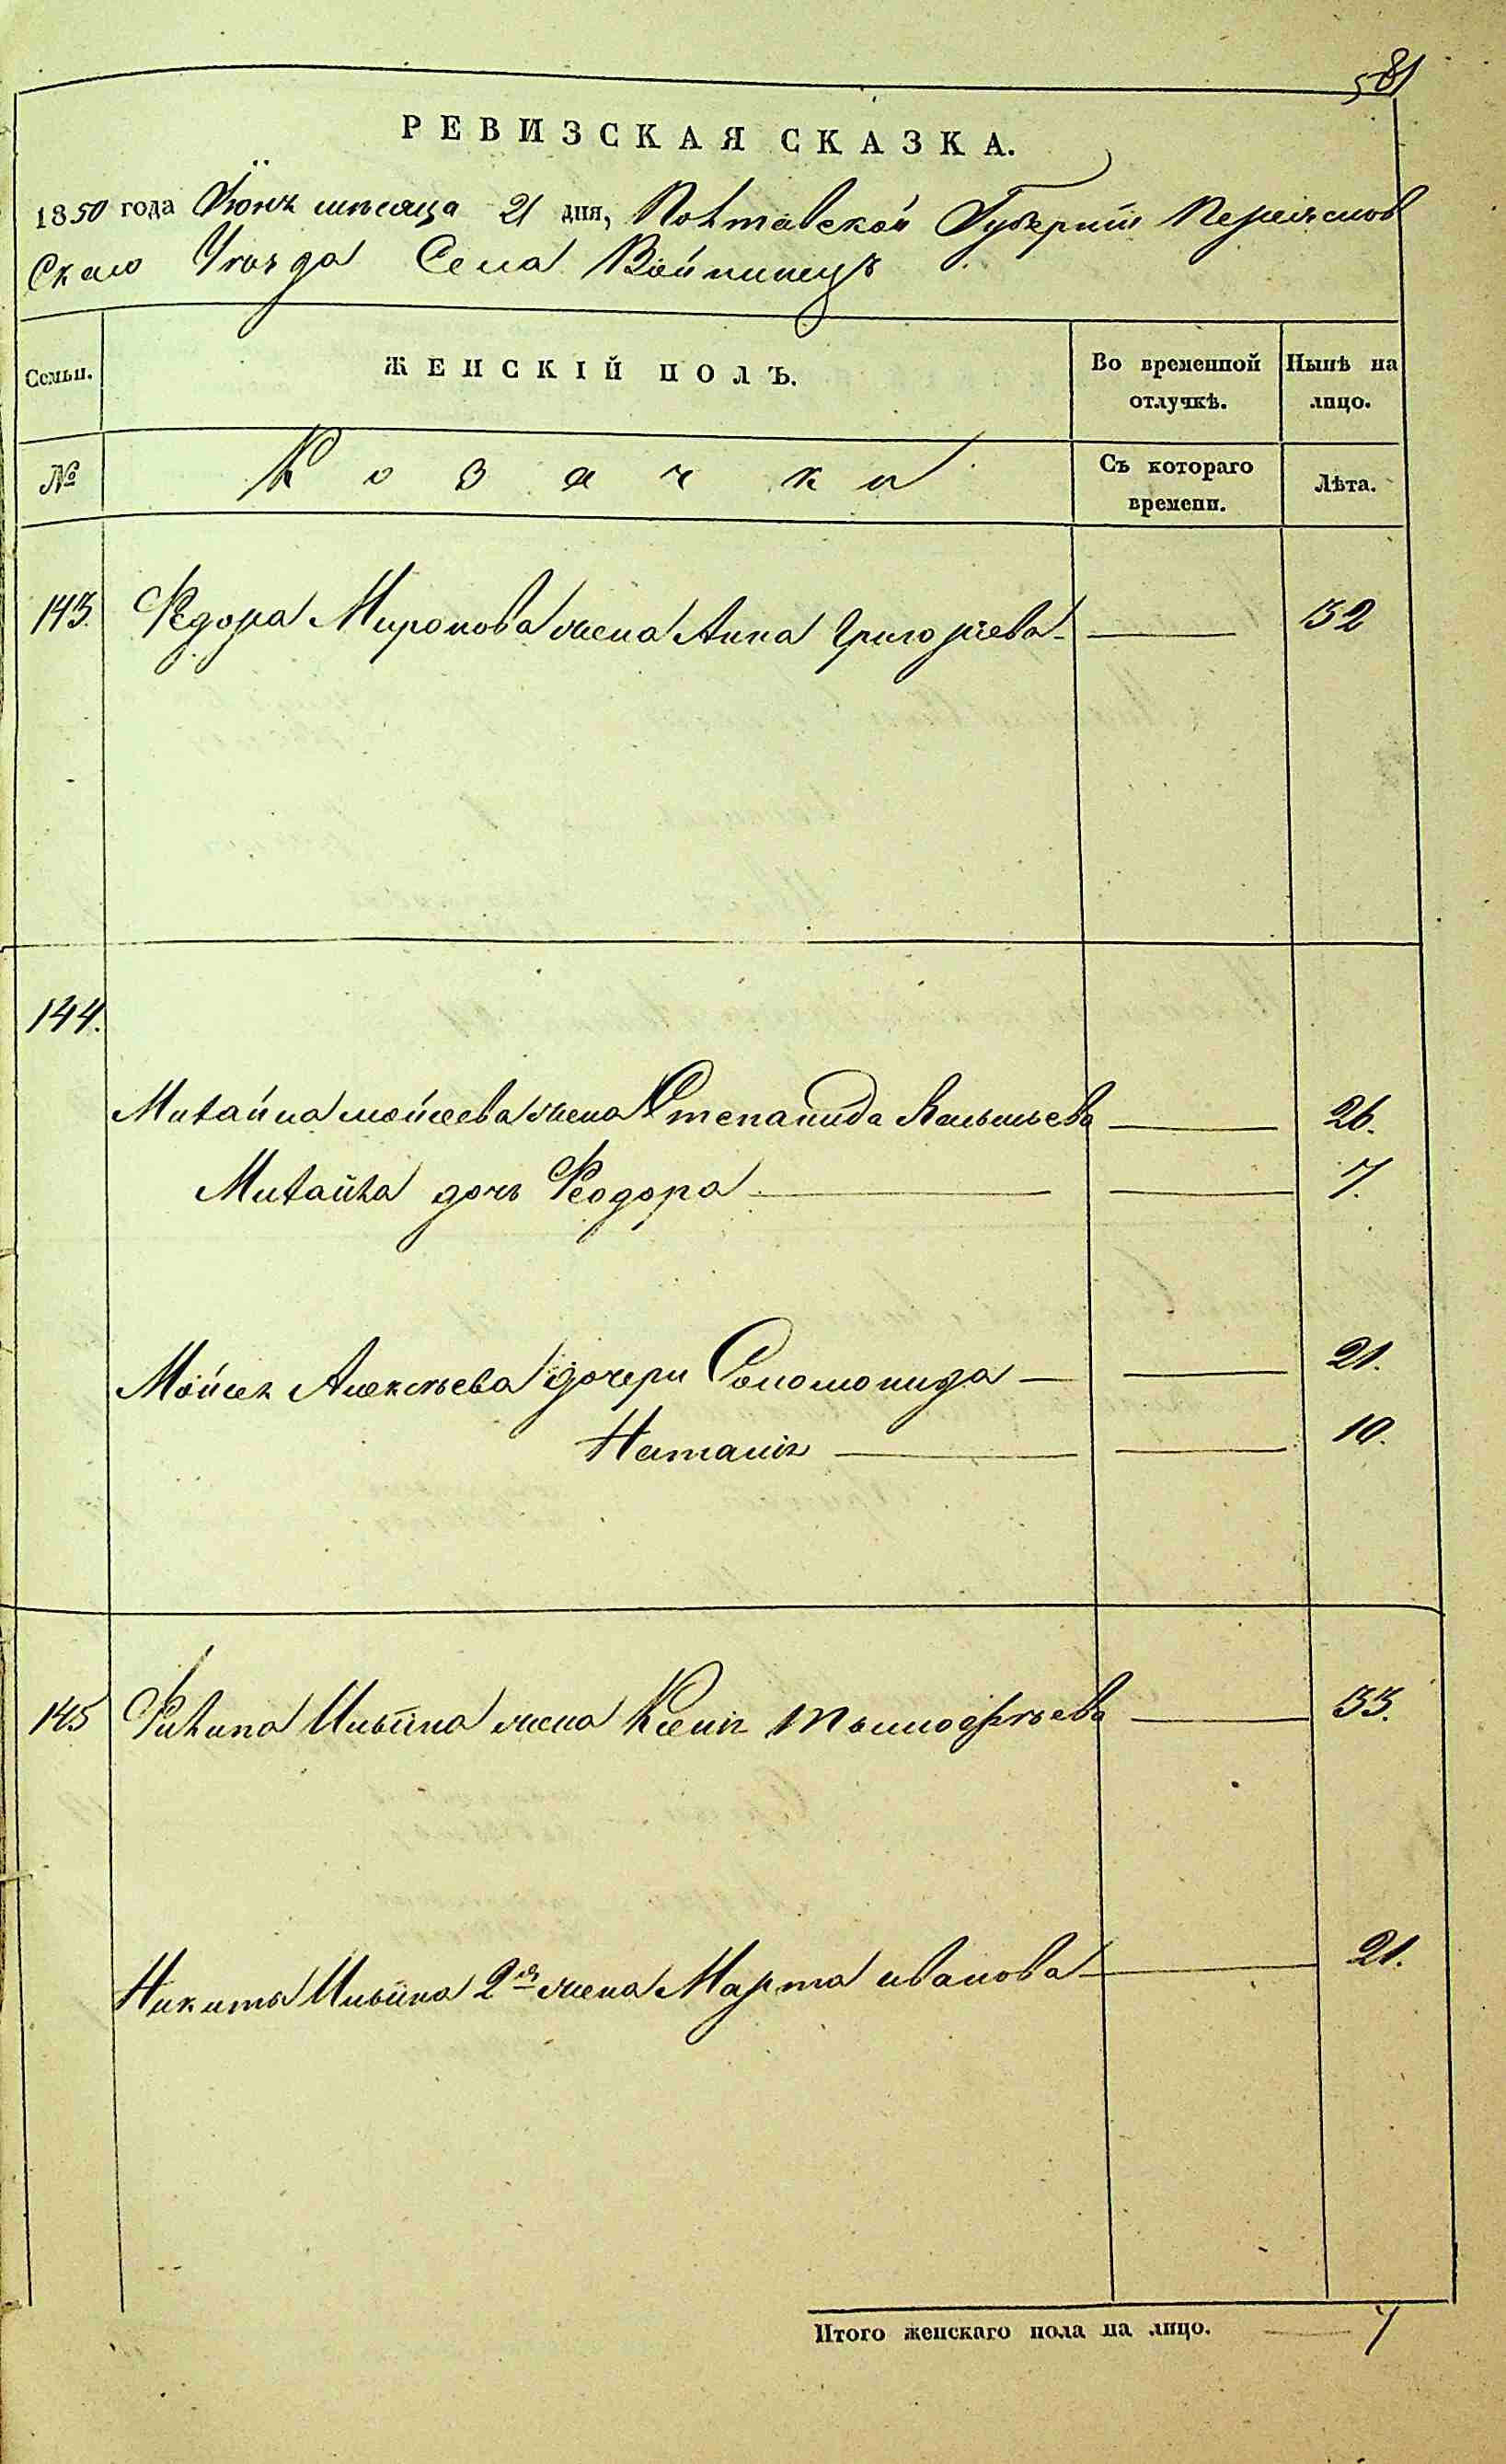 581
РЕВИЗСКАЯ СКАЗКА.
1850 года Іюня мѣсяца 21 дня, Полтавской Губерніи Переяслов
Скаго Уѣзда Села Войнинецъ
Семьи. ЖЕНСКІЙ ПОЛЪ. Во временной отлучкѣ. Нынѣ на лицо.
№ Козачки Съ котораго времени. Лѣта.
143. Федора Миронова жена Анна Григорьева 32
144.
Михайла мойсеева жена Степанида 26.
Михайла дочь Феодора 7.
Мойсея Алексѣева дочери Соломонида 21.
Наталія 10.
145 Филипа Ильина жена Ксенія Тымофѣева 33.
Никиты Ильина 2я жена Марта иванова 21.
Итого женскаго пола на лицо. 7